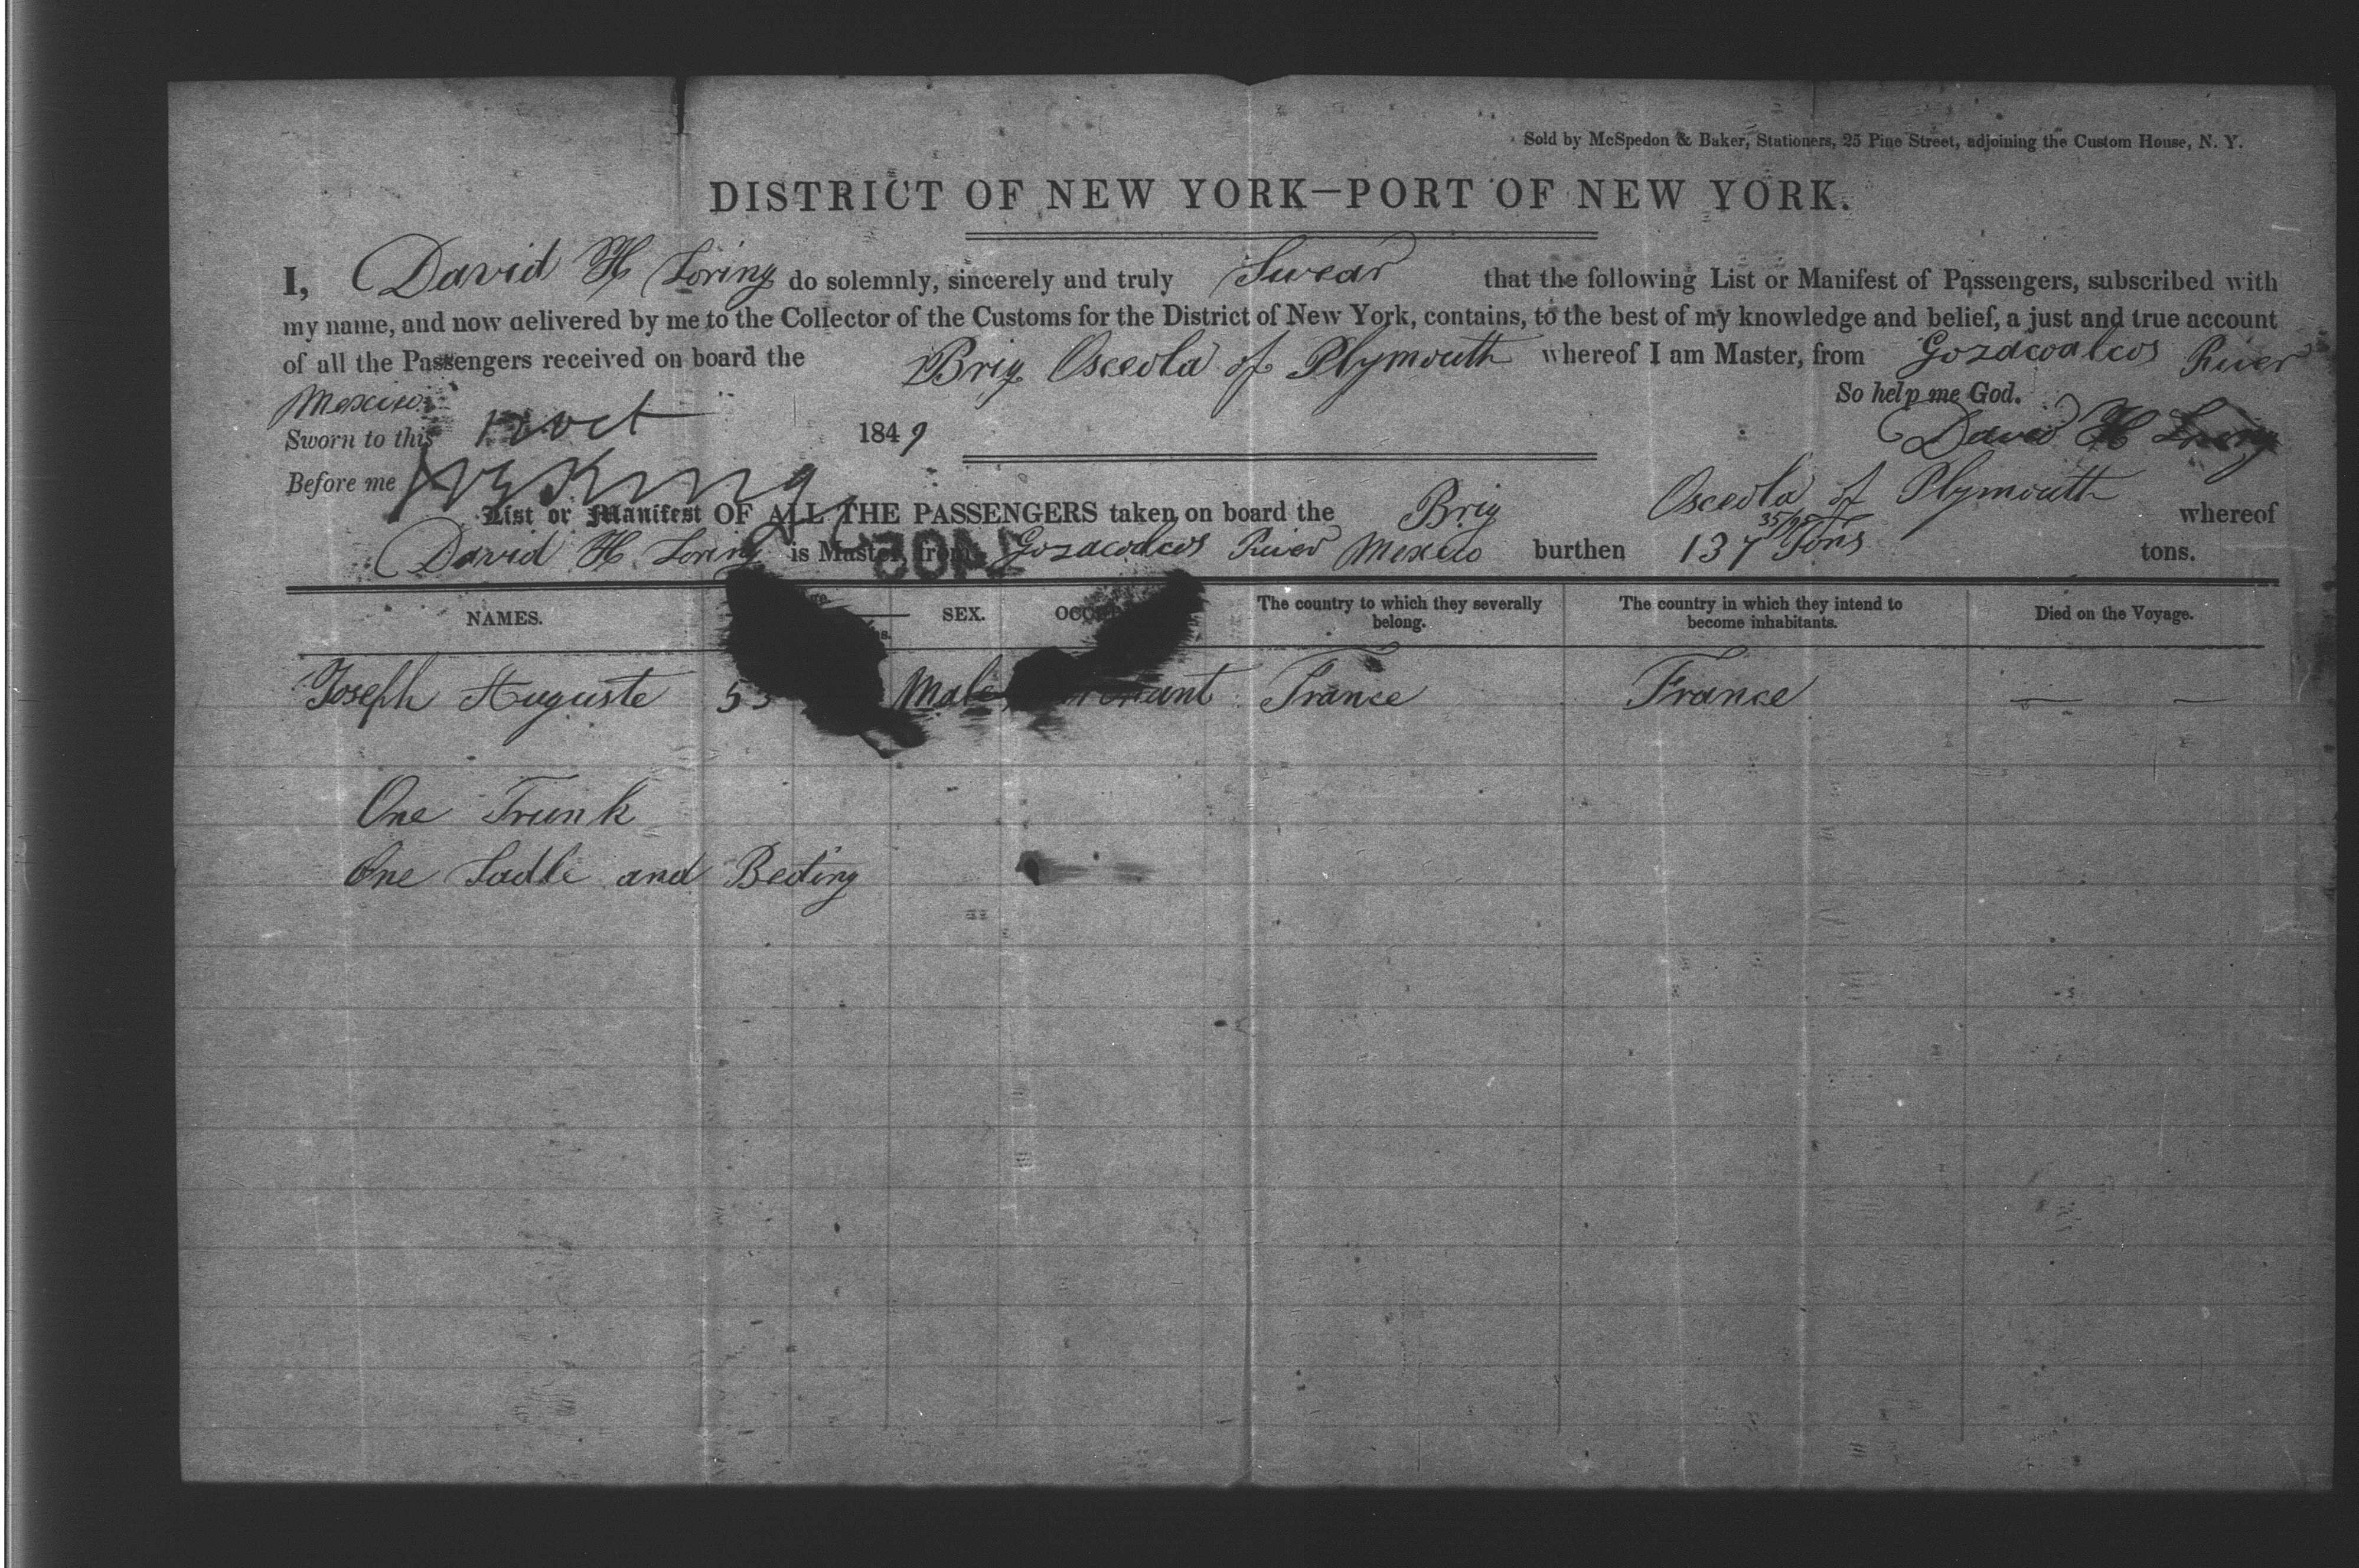 Sold by McSpedon & Baker, Stationers, 25 Pine Street, adjoining the Custom House, N. Y.
DISTRICT OF NEW YORK—PORT OF NEW YORK.
I, David H Loring do solemnly, sincerely and truly Swear that the following List or Manifest of Passengers, subscribed with
my name, and now delivered by me to the Collector of the Customs for the District of New York, contains, to the best of my knowledge and belief, a just and true account
of all the Passengers received on board the Brig Osceola of Plymouth whereof I am Master, from Gozacoalcos River
Mexico So help me God.
Sworn to this 12 oct 1849 David H Loring
Before me
List or Manifest OF ALL THE PASSENGERS taken on board the Brig Osceola of Plymouth whereof
David H Loring is Master from Gozacoalcos River Mexico burthen 137 35/95 Tons tons.
NAMES. SEX. The country to which they severally belong. The country in which they intend to become inhabitants. Died on the Voyage.
Joseph Auguste Male France France — —
One Trunk
One Sadle and Beding